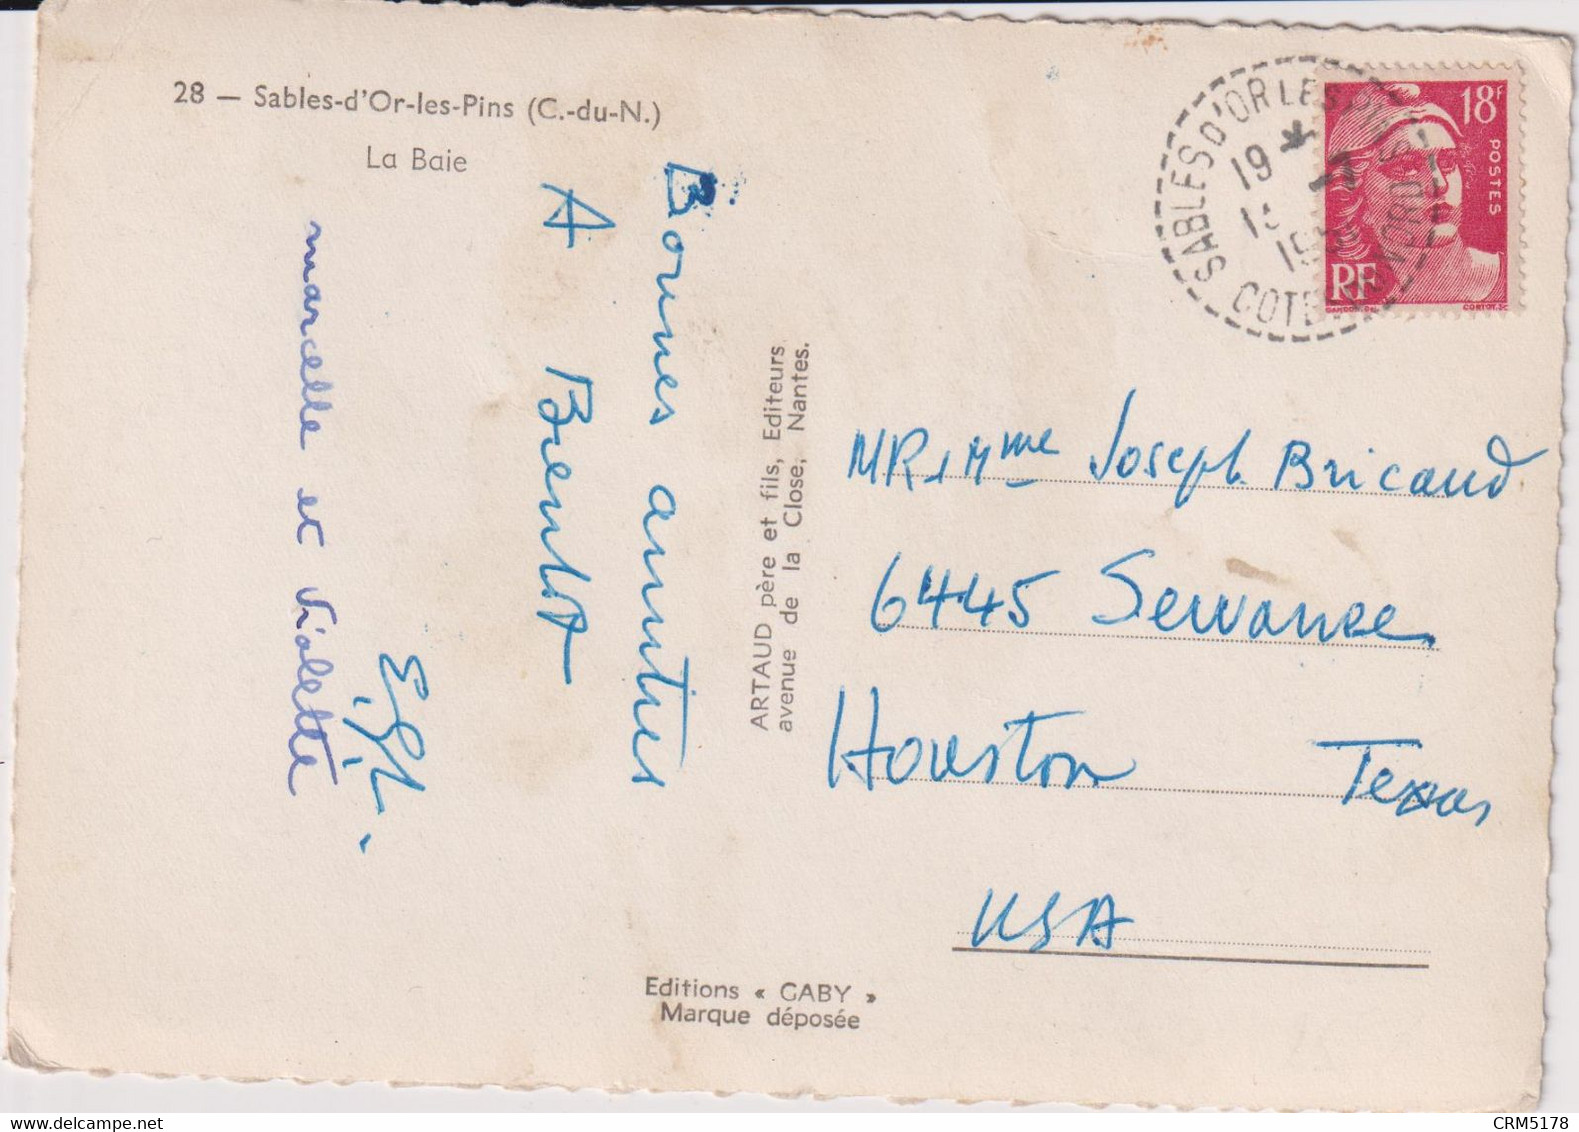 28 — Sables-d'Or-les-Pins (C.-du-N.)
La Baie
Bonnes amitiés
A Bientôt
marcelle et Violette
ARTAUD père et fils, Editeurs
avenue de la Close, Nantes.
Editions « GABY »
Marque déposée
18F
POSTES
RF
SABLES D'OR LES PINS
COTES DU NORD
19
MR & Mme Joseph Bricaud
6445 Sewanee
Houston Texas
USA
CRM5178